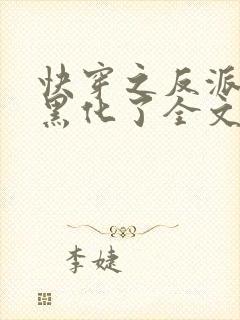 快穿之反派
黑化了全文
李婕